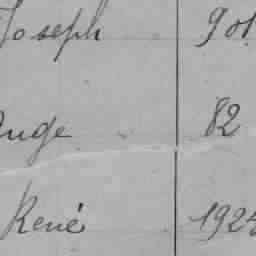 Joseph 901
Ange 82
René 192